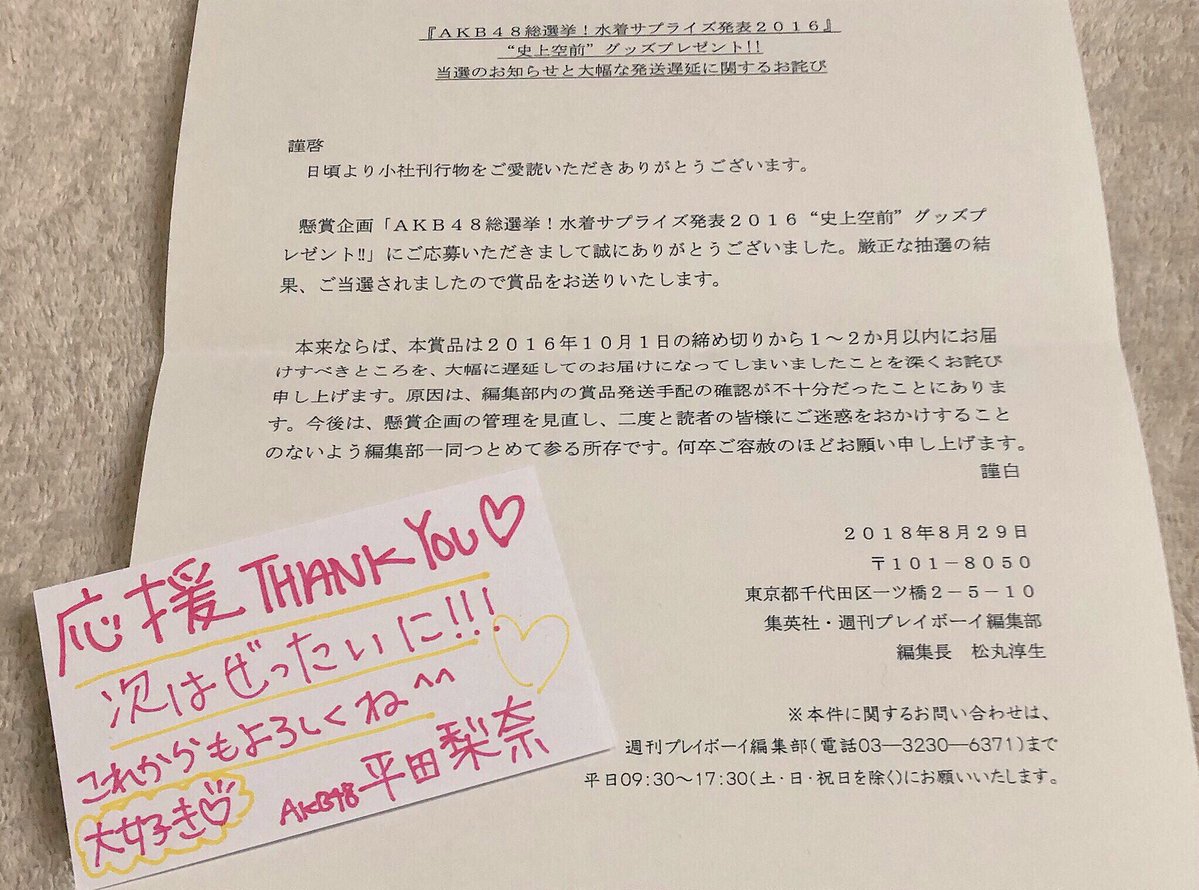 『ＡＫＢ４８総選挙！水着サプライズ発表２０１６』
“史上空前”グッズプレゼント!!
当選のお知らせと大幅な発送遅延に関するお詫び
謹啓
日頃より小社刊行物をご愛読いただきありがとうございます。
懸賞企画「ＡＫＢ４８総選挙！水着サプライズ発表２０１６“史上空前”グッズプ
レゼント!!」にご応募いただきまして誠にありがとうございました。厳正な抽選の結
果、ご当選されましたので賞品をお送りいたします。
本来ならば、本賞品は２０１６年１０月１日の締め切りから１～２か月以内にお届
けすべきところを、大幅に遅延してのお届けになってしまいましたことを深くお詫び
申し上げます。原因は、編集部内の賞品発送手配の確認が不十分だったことにありま
す。今後は、懸賞企画の管理を見直し、二度と読者の皆様にご迷惑をおかけすること
のないよう編集部一同つとめて参る所存です。何卒ご容赦のほどお願い申し上げます。
謹白
２０１８年８月２９日
〒１０１－８０５０
東京都千代田区一ツ橋２－５－１０
集英社・週刊プレイボーイ編集部
編集長　松丸淳生
※本件に関するお問い合わせは、
週刊プレイボーイ編集部（電話03―3230―6371）まで
平日09:30～17:30（土・日・祝日を除く）にお願いいたします。
応援 THANK YOU♡
次はぜったいに!!!
これからもよろしくね^^
大好き♡
AKB48 平田梨奈